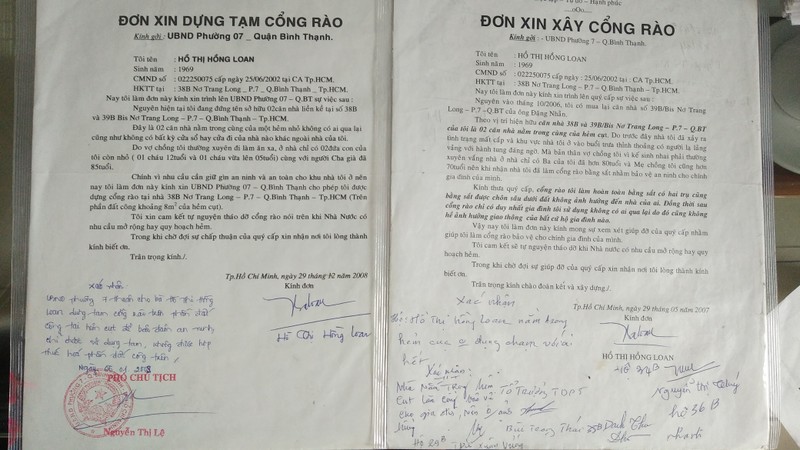 ĐƠN XIN DỰNG TẠM CỔNG RÀO
Kính gửi : UBND Phường 07 _ Quận Bình Thạnh.
Tôi tên : HỒ THỊ HỒNG LOAN
Sinh năm : 1969
CMND số : 022250075 cấp ngày 25/06/2002 tại CA Tp.HCM.
HKTT tại : 38B Nơ Trang Long _ P.7 _ Q.Bình Thạnh _ Tp.HCM.
Nay tôi làm đơn này kính xin trình lên UBND Phường 07 – Q.BT sự việc sau :
Nguyên hiện tại tôi đang đứng tên sở hữu 02căn nhà liền kề tại số 38B
và 39B Bis Nơ Trang Long – P.7 – Q.Bình Thạnh.
Đây là 02 căn nhà nằm trong cùng của một hẻm nhỏ không có ai qua lại
cũng như không có bất kỳ cửa sổ hay cửa đi của nhà nào khác ngoài nhà của tôi.
Do vợ chồng tôi thường xuyên đi làm ăn xa, ở nhà chỉ có 02đứa con của
tôi còn nhỏ ( 01 cháu 12tuổi và 01 cháu vừa lên 05tuổi) cùng với người Cha già đã
85tuổi.
Chính vì nhu cầu cần giữ gìn an ninh và an toàn cho khu nhà tôi ở nên
nay tôi làm đơn này kính xin UBND Phường 07 – Q.Bình Thạnh cho phép tôi được
dựng cổng rào tại nhà 38B Nơ Trang Long – P.7 – Q.Bình Thạnh – Tp.HCM (Trên
phần đất công khoảng 8m² của hẻm cụt).
Tôi xin cam kết tự nguyện tháo dỡ cổng rào nói trên khi Nhà Nước có
nhu cầu mở rộng hay quy hoạch hẻm.
Trong khi chờ đợi sự chấp thuận của quý cấp xin nhận nơi tôi lòng thành
kính biết ơn.
Trân trọng kính./.
Tp.Hồ Chí Minh, ngày 29 tháng 12 năm 2008
Kính đơn
Hồ Thị Hồng Loan
Xác nhận
UBND phường 7
PHÓ CHỦ TỊCH
Nguyễn Thị Lệ
ĐƠN XIN XÂY CỔNG RÀO
Kính gửi : - UBND Phường 7 – Q.Bình Thạnh.
Tôi tên : HỒ THỊ HỒNG LOAN
Sinh năm : 1969
CMND số : 022250075 cấp ngày 25/06/2002 tại CA Tp.HCM.
HKTT tại : 38B Nơ Trang Long – P.7 – Q.Bình Thạnh – Tp.HCM.
Nay tôi làm đơn này kính xin trình lên quý cấp sự việc sau :
Nguyên vào tháng 10/2006, tôi có mua lại căn nhà số 39B/Bis Nơ Trang
Long – P.7 – Q.BT của ông Đặng Nhẫn.
Theo vị trí hiện hữu căn nhà 38B và 39B/Bis Nơ Trang Long – P.7 – Q.BT
của tôi là 02 căn nhà nằm trong cùng của hẻm cụt. Do trước đây nhà đã xảy ra
tình trạng mất cắp và khu vực nhà tôi ở vào buổi trưa thỉnh thoảng có người lạ lảng
vảng với hành tung đáng ngờ. Mà bản thân vợ chồng tôi vì kế sinh nhai phải thường
xuyên vắng nhà ở nhà chỉ có Ba của tôi đã hơn 80tuổi và Mẹ chồng tôi cũng hơn
70tuổi nên khi mua nhà tôi đã làm cổng rào bằng sắt nhằm bảo vệ an ninh cho chính
gia đình của mình.
Kính thưa quý cấp, cổng rào tôi làm hoàn toàn bằng sắt có hai trụ cũng
bằng sắt được chôn sâu dưới đất không ảnh hưởng đến nhà của ai. Đồng thời sau
cổng rào chỉ có duy nhất gia đình tôi sử dụng không có ai qua lại do đó cũng không
hề ảnh hưởng giao thông của bất cứ hộ gia đình nào.
Vậy nay tôi làm đơn này kính mong sự xem xét giúp đỡ của quý cấp nhằm
giúp tôi làm cổng rào bảo vệ cho chính gia đình của mình.
Tôi cam kết sẽ tự nguyện tháo dỡ khi Nhà Nước có nhu cầu mở rộng hay quy
hoạch hẻm.
Trong khi chờ đợi sự giúp đỡ của quý cấp xin nhận nơi tôi lòng thành kính
biết ơn.
Trân trọng kính chào đoàn kết và xây dựng./.
Tp.Hồ Chí Minh, ngày 29 tháng 05 năm 2007
Kính đơn
HỒ THỊ HỒNG LOAN
Xác nhận
Hồ Thị Hồng Loan nằm trong
hết
Xác nhận
Tổ Trưởng TDP5
hộ 36B